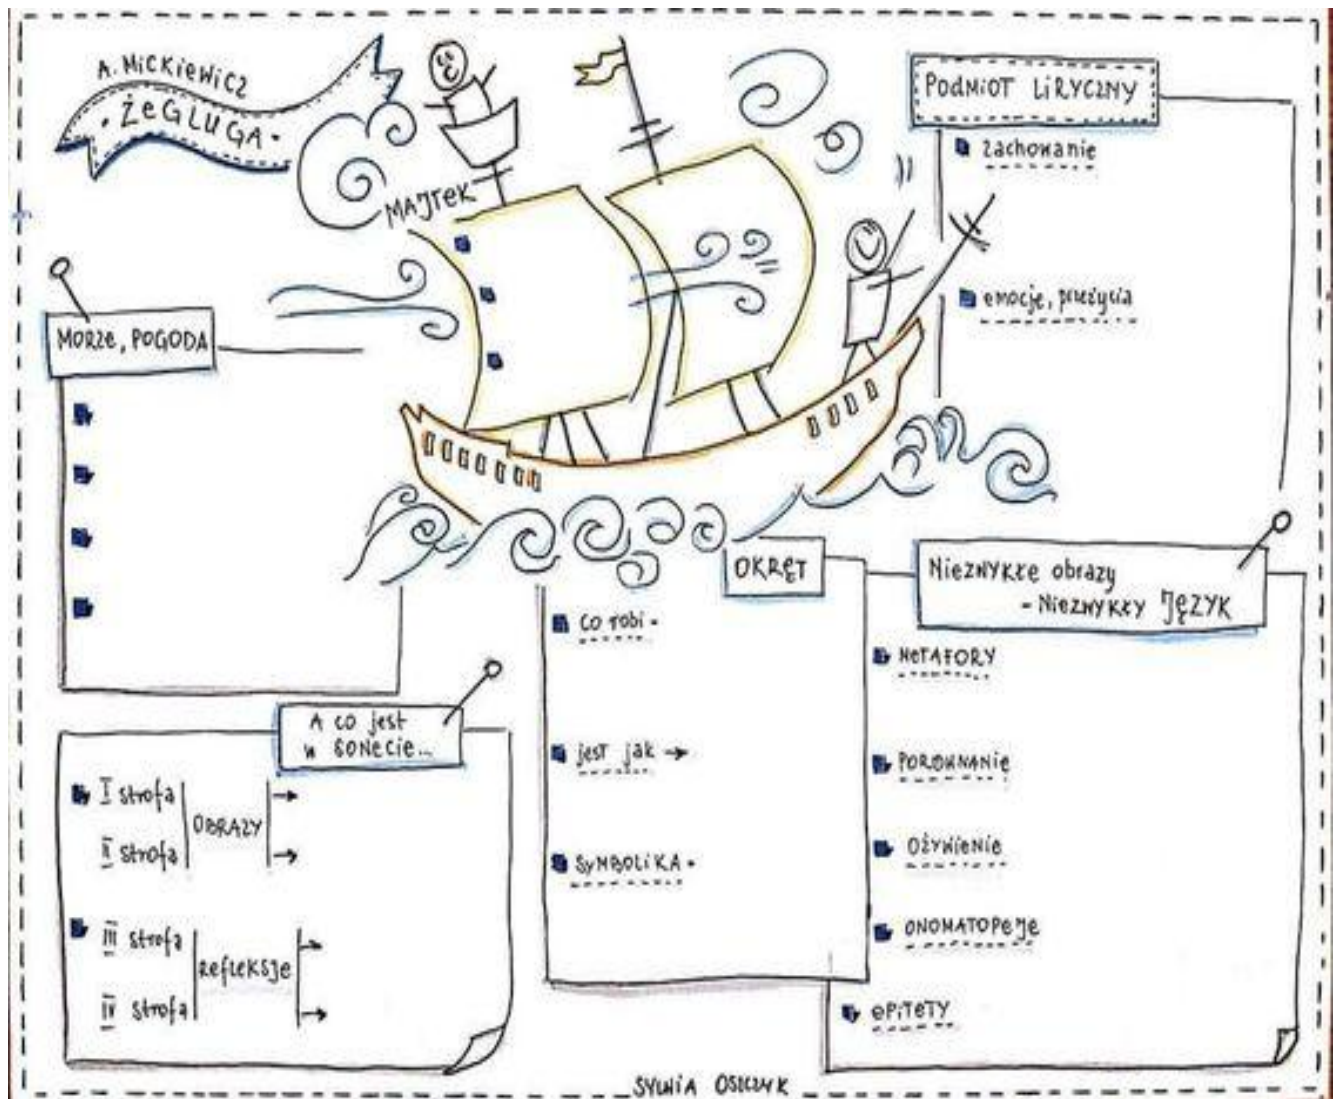 A. MICKIEWICZ
• ŻEGLUGA •
MAJTEK
PODMIOT LIRYCZNY
zachowanie
emocje, przeżycia
MORZE, POGODA
OKRĘT
co robi -
jest jak →
SYMBOLIKA -
Niezwykłe obrazy
- Niezwykły JĘZYK
METAFORY
PORÓWNANIE
OŻYWIENIE
ONOMATOPEJE
EPITETY
A co jest
w SONECIE...
I strofa
II strofa
OBRAZY
III strofa
IV strofa
REFLEKSJE
SYLWIA OSZCZYK